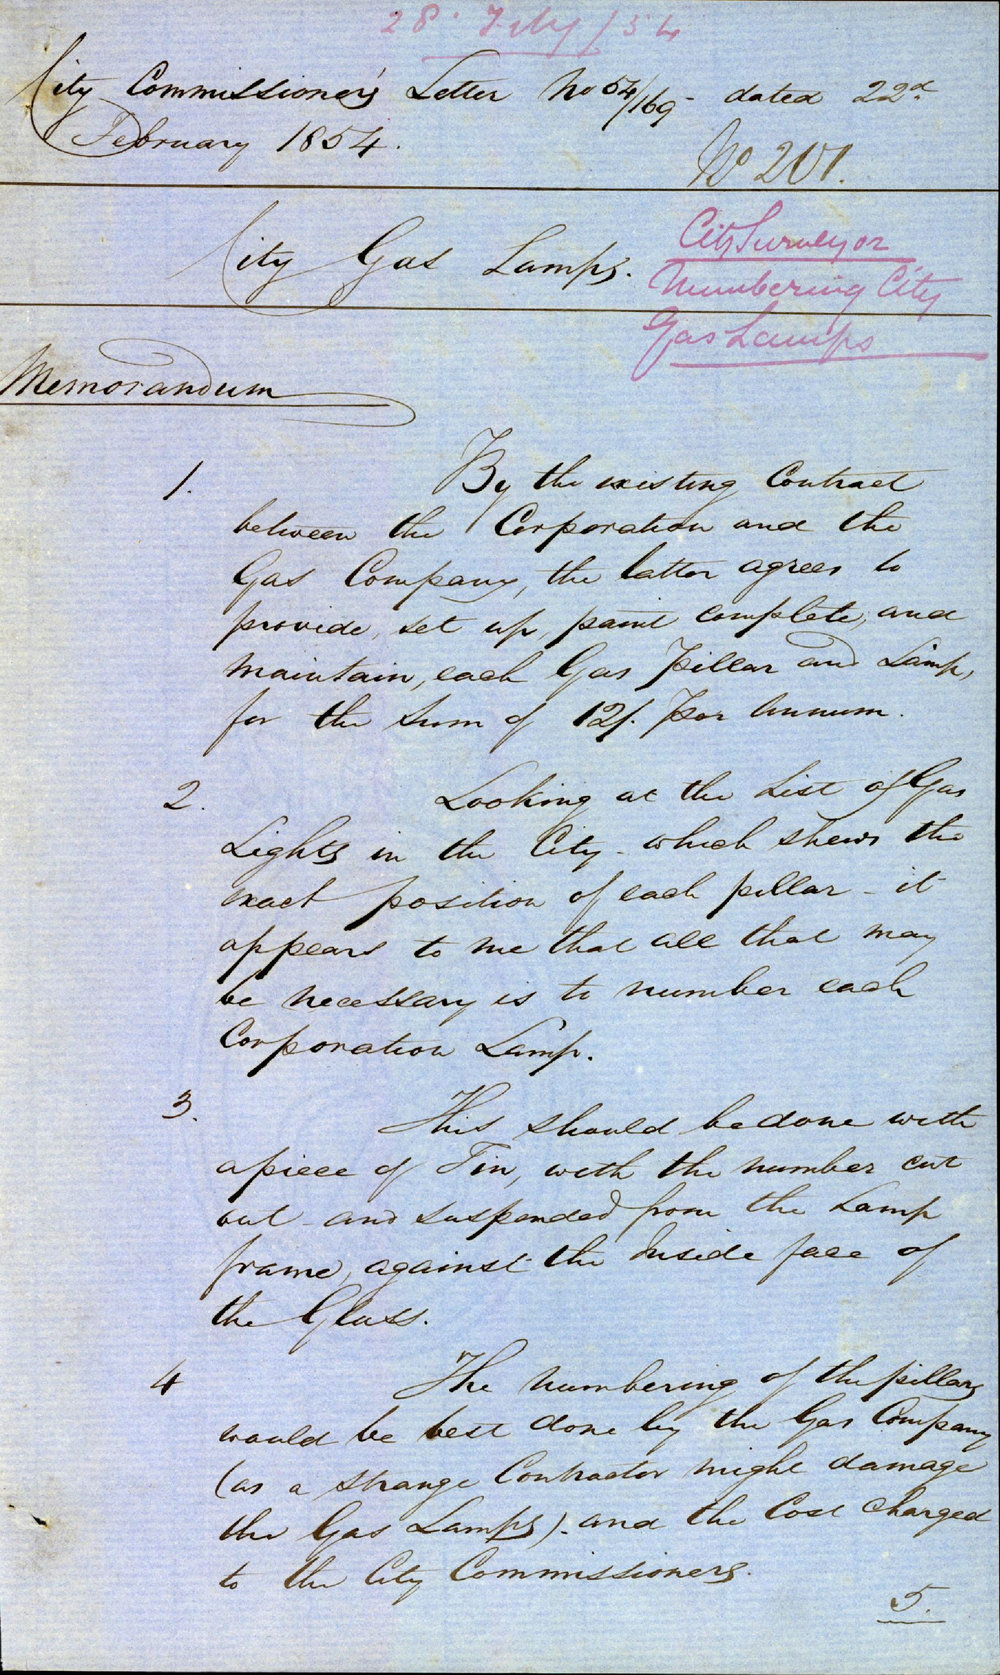 28. Feby /54
City Commissioner's Letter No 54/169 - dated 22d
February 1854.
No 201.
City Gas Lamps.
City Surveyor
Numbering City
Gas Lamps
Memorandum
1. By the existing Contract
between the Corporation and the
Gas Company, the latter agrees to
provide, set up, paint complete, and
maintain, each Gas Pillar and Lamp,
for the Sum of 12/. Per Annum.
2. Looking at the List of Gas
Lights in the City - which shews the
exact position of each pillar - it
appears to me that all that may
be necessary is to number each
Corporation Lamp.
3. This should be done with
a piece of Tin, with the number cut
out - and suspended from the Lamp
frame, against the Inside face of
the Glass.
4 The numbering of the pillars
would be best done by the Gas Company
(as a strange Contractor might damage
the Gas Lamps). and the Cost Charged
to the City Commissioners.
5.